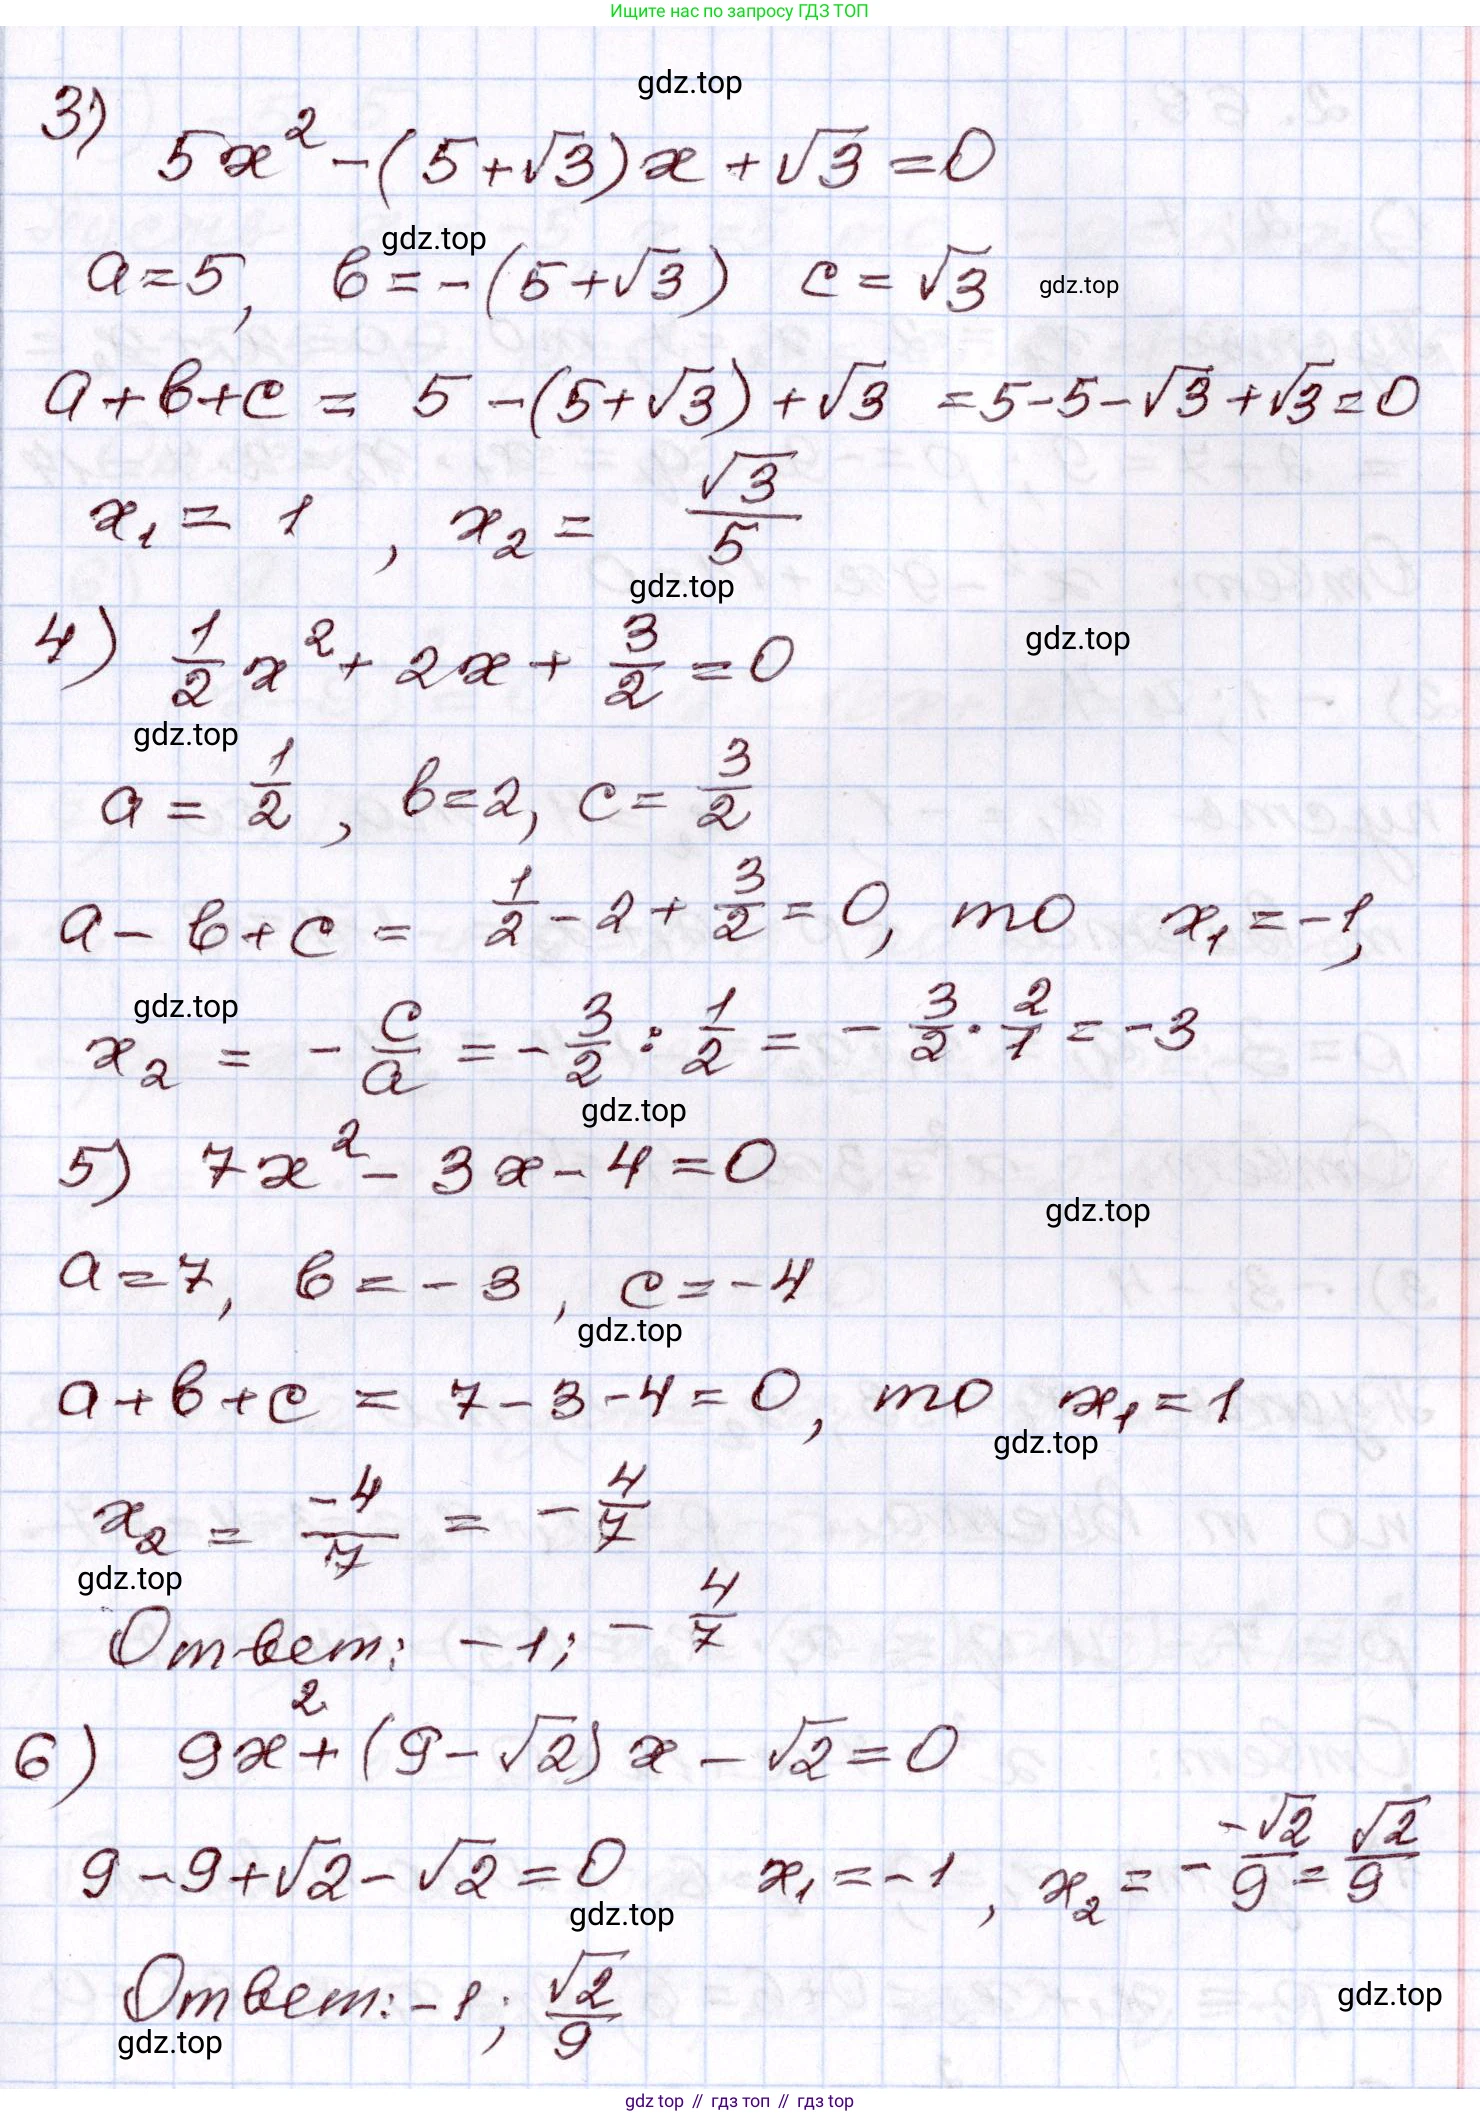 Ищите нас по запросу ГДЗ ТОП
gdz.top
3) 5x² - (5+√3)x + √3 = 0
gdz.top
a=5, b=-(5+√3) c=√3 gdz.top
a+b+c = 5-(5+√3)+√3 =5-5-√3+√3=0
x₁ = 1, x₂ = √3/5
gdz.top
4) 1/2 x² + 2x + 3/2 = 0 gdz.top
gdz.top
a = 1/2, b=2, c= 3/2
a-b+c = 1/2 - 2 + 3/2 = 0, то x₁ = -1,
gdz.top
x₂ = - c/a = - 3/2 : 1/2 = - 3/2 · 2/1 = -3
gdz.top
5) 7x² - 3x - 4 = 0
gdz.top
a=7, b=-3, c=-4
gdz.top
a+b+c = 7-3-4=0, то x₁ = 1
gdz.top
x₂ = -4/7 = - 4/7
gdz.top
Ответ: -1; - 4/7
6) 9x² + (9-√2)x - √2 = 0
9-9+√2-√2=0 x₁=-1, x₂= - -√2/9 = √2/9
gdz.top
Ответ: -1; √2/9
gdz.top
gdz.top
gdz top // гдз топ // gdz top